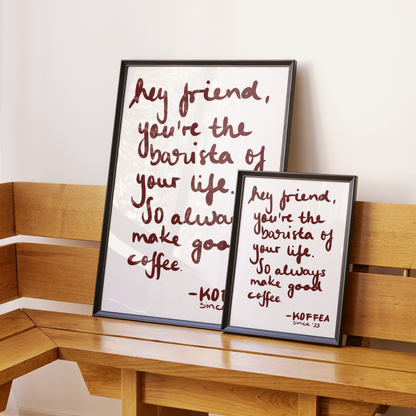 hey friend,
you're the
barista of
your life.
So alway
make goo
coffee.
-KOF
Since
hey friend,
you're the
barista of
your life.
So always
make good
coffee.
-KOFFEA
Since '23